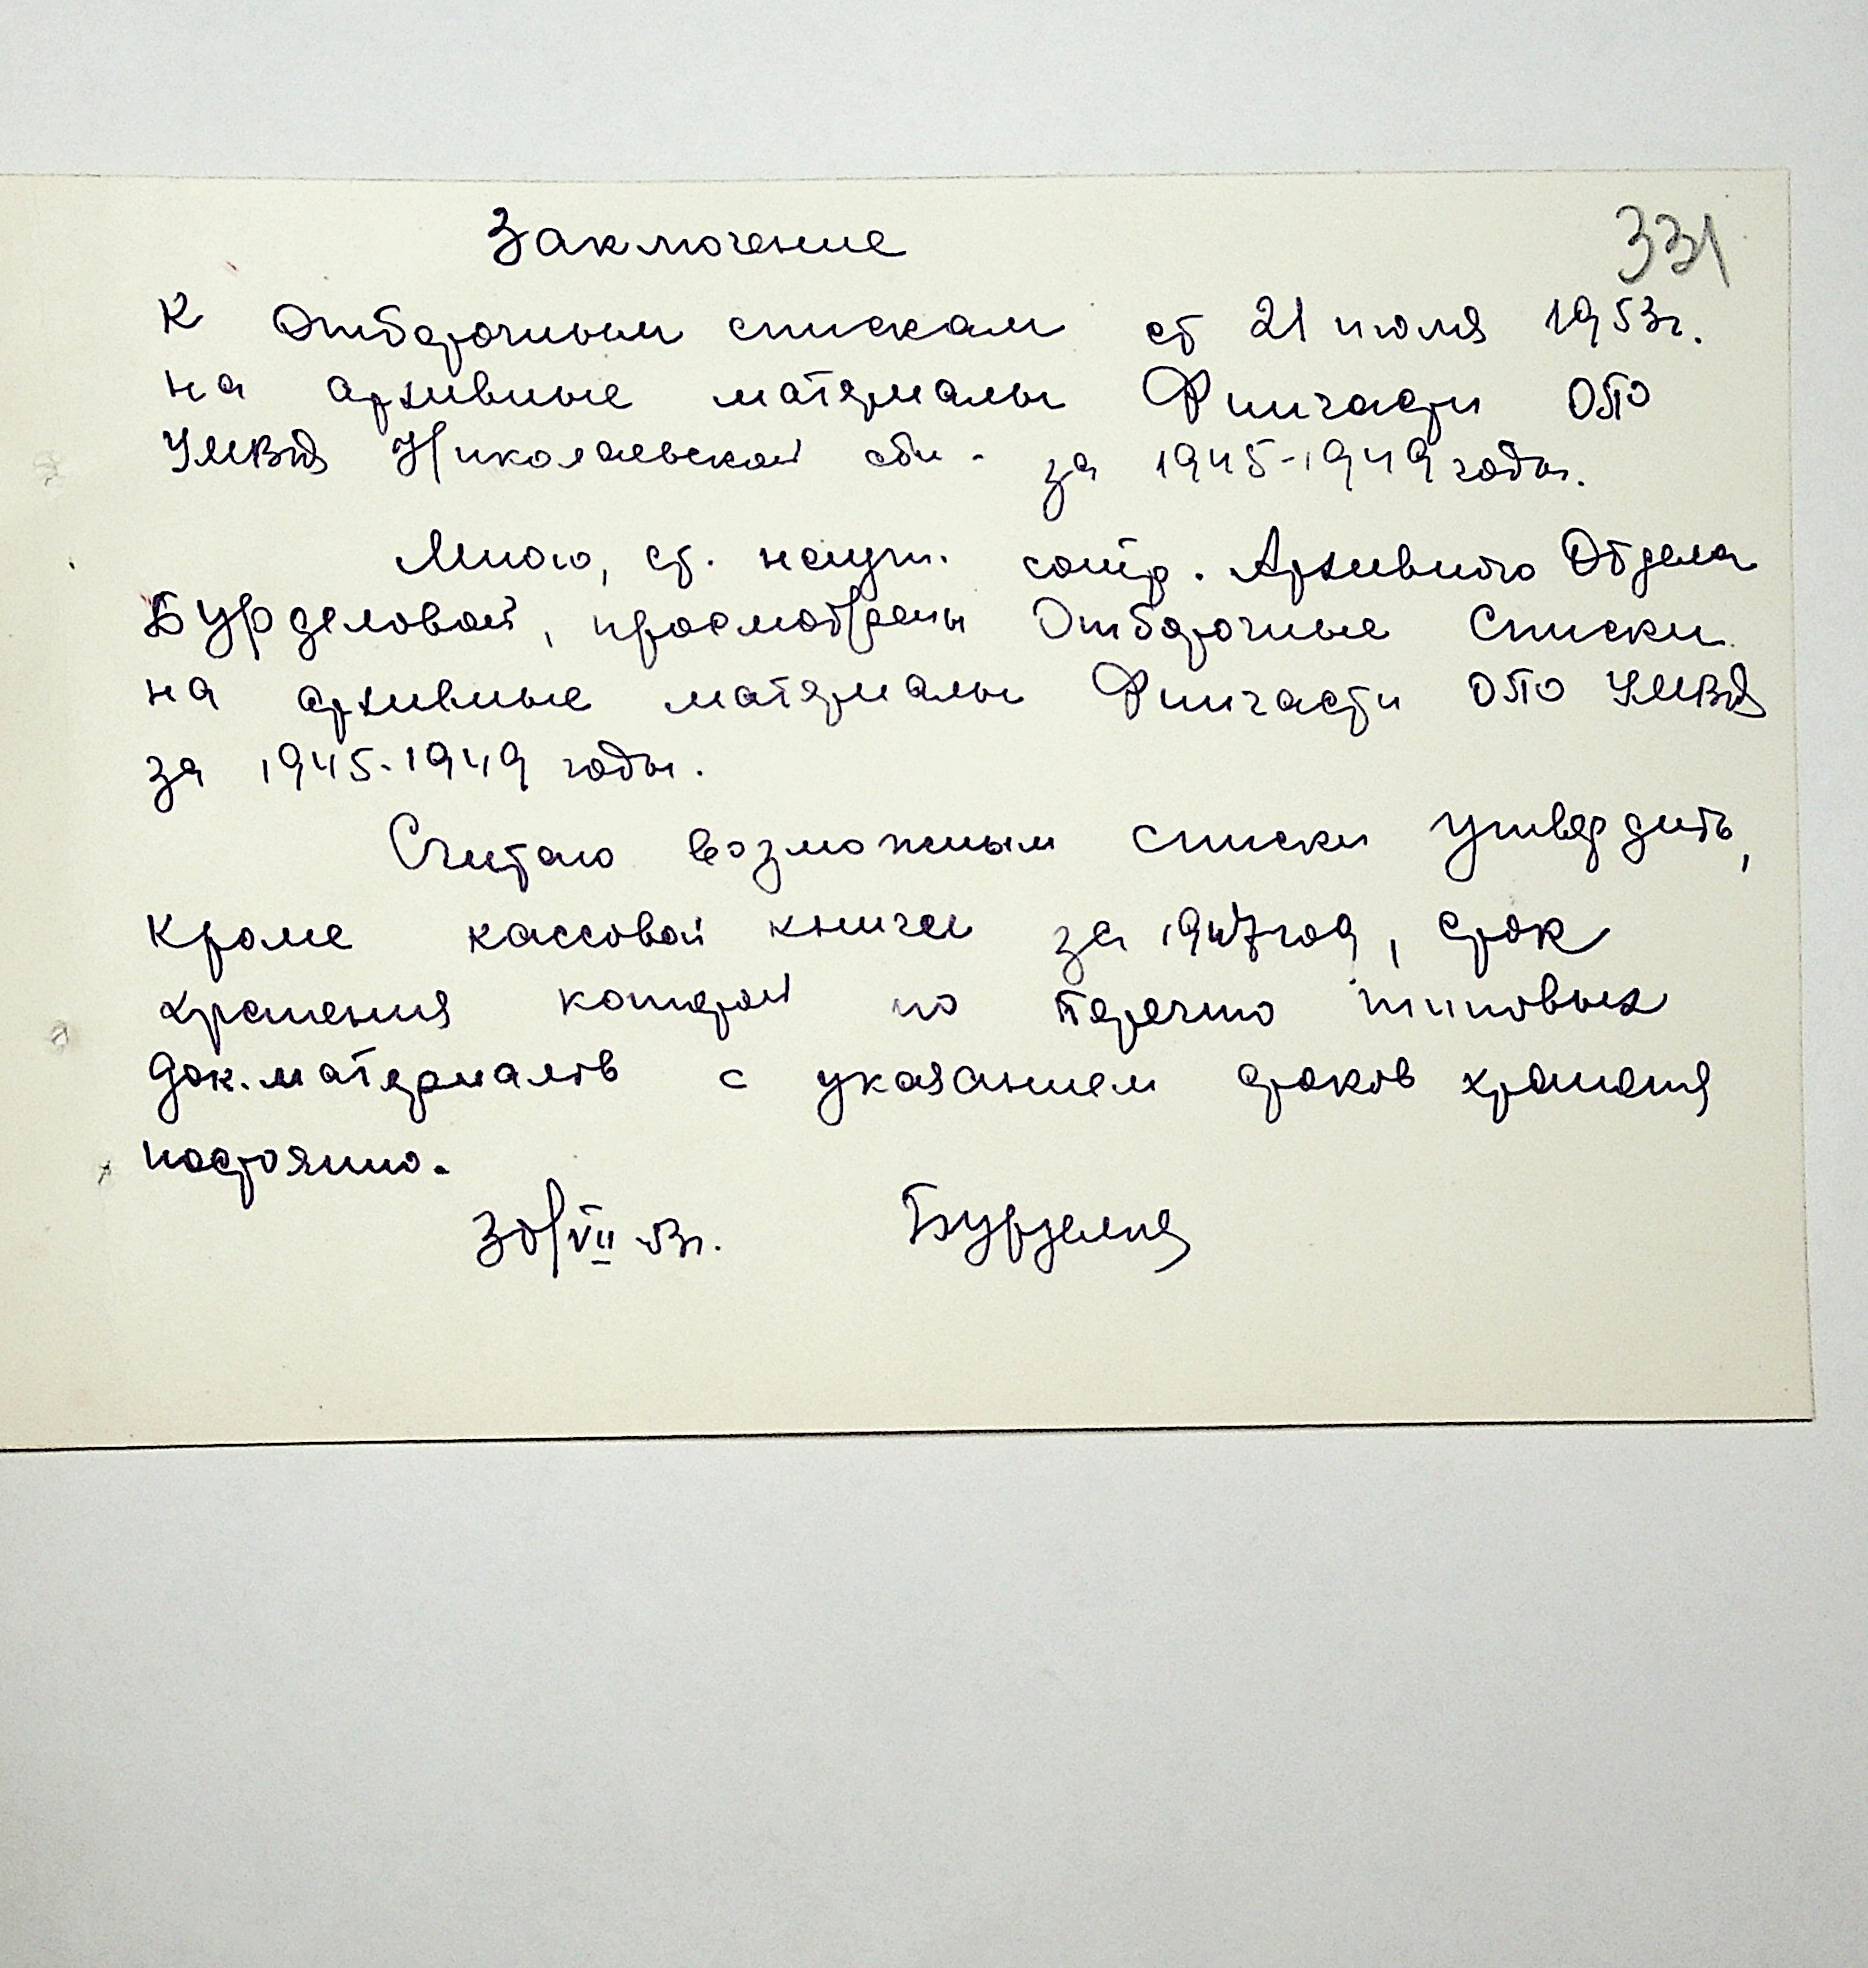 331
Заключение
К Отборочным спискам от 21 июля 1953г.
на архивные материалы Финчасти ОПО
УМВД Николаевской обл. за 1945-1949 годы.
Мною, ст. научн. сотр. Архивного Отдела
Бурделовой, просмотрены Отборочные Списки
на архивные материалы Финчасти ОПО УМВД
за 1945-1949 годы.
Считаю возможным списки утвердить,
кроме кассовой книги за 1947 год, срок
хранения которой по Перечню типовых
док. материалов с указанием сроков хранения
постоянно.
30/VII 53г.